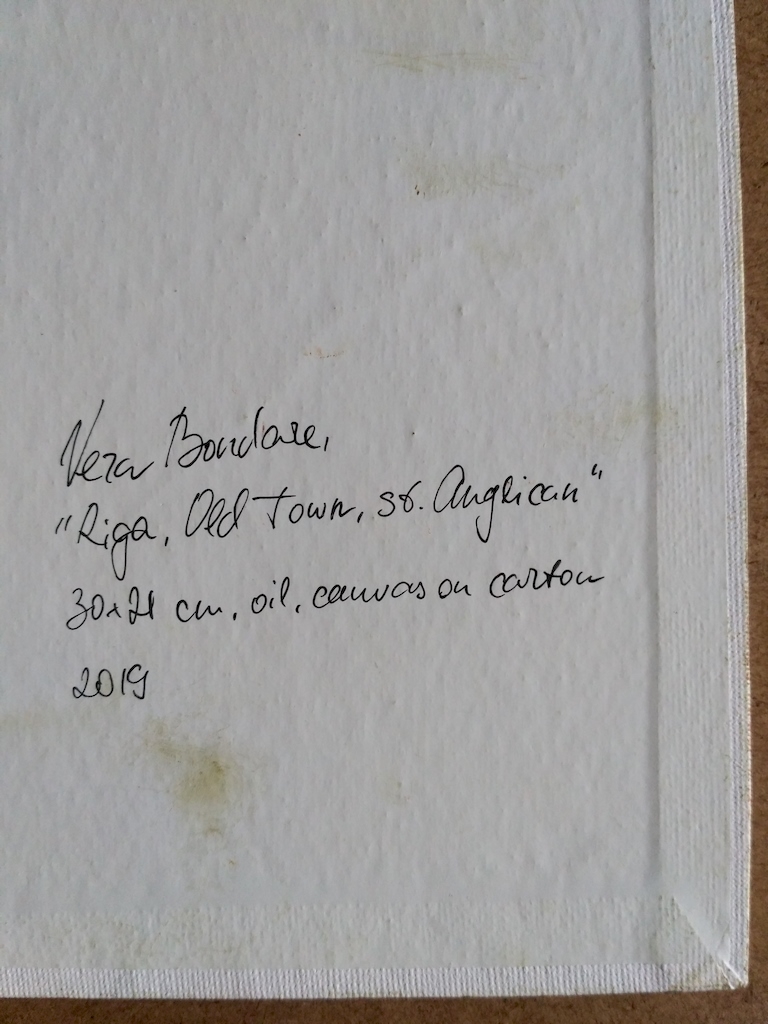 Vera Bondare,
"Riga, Old Town, st. Anglican"
30x21 cm, oil, canvas on carton
2019